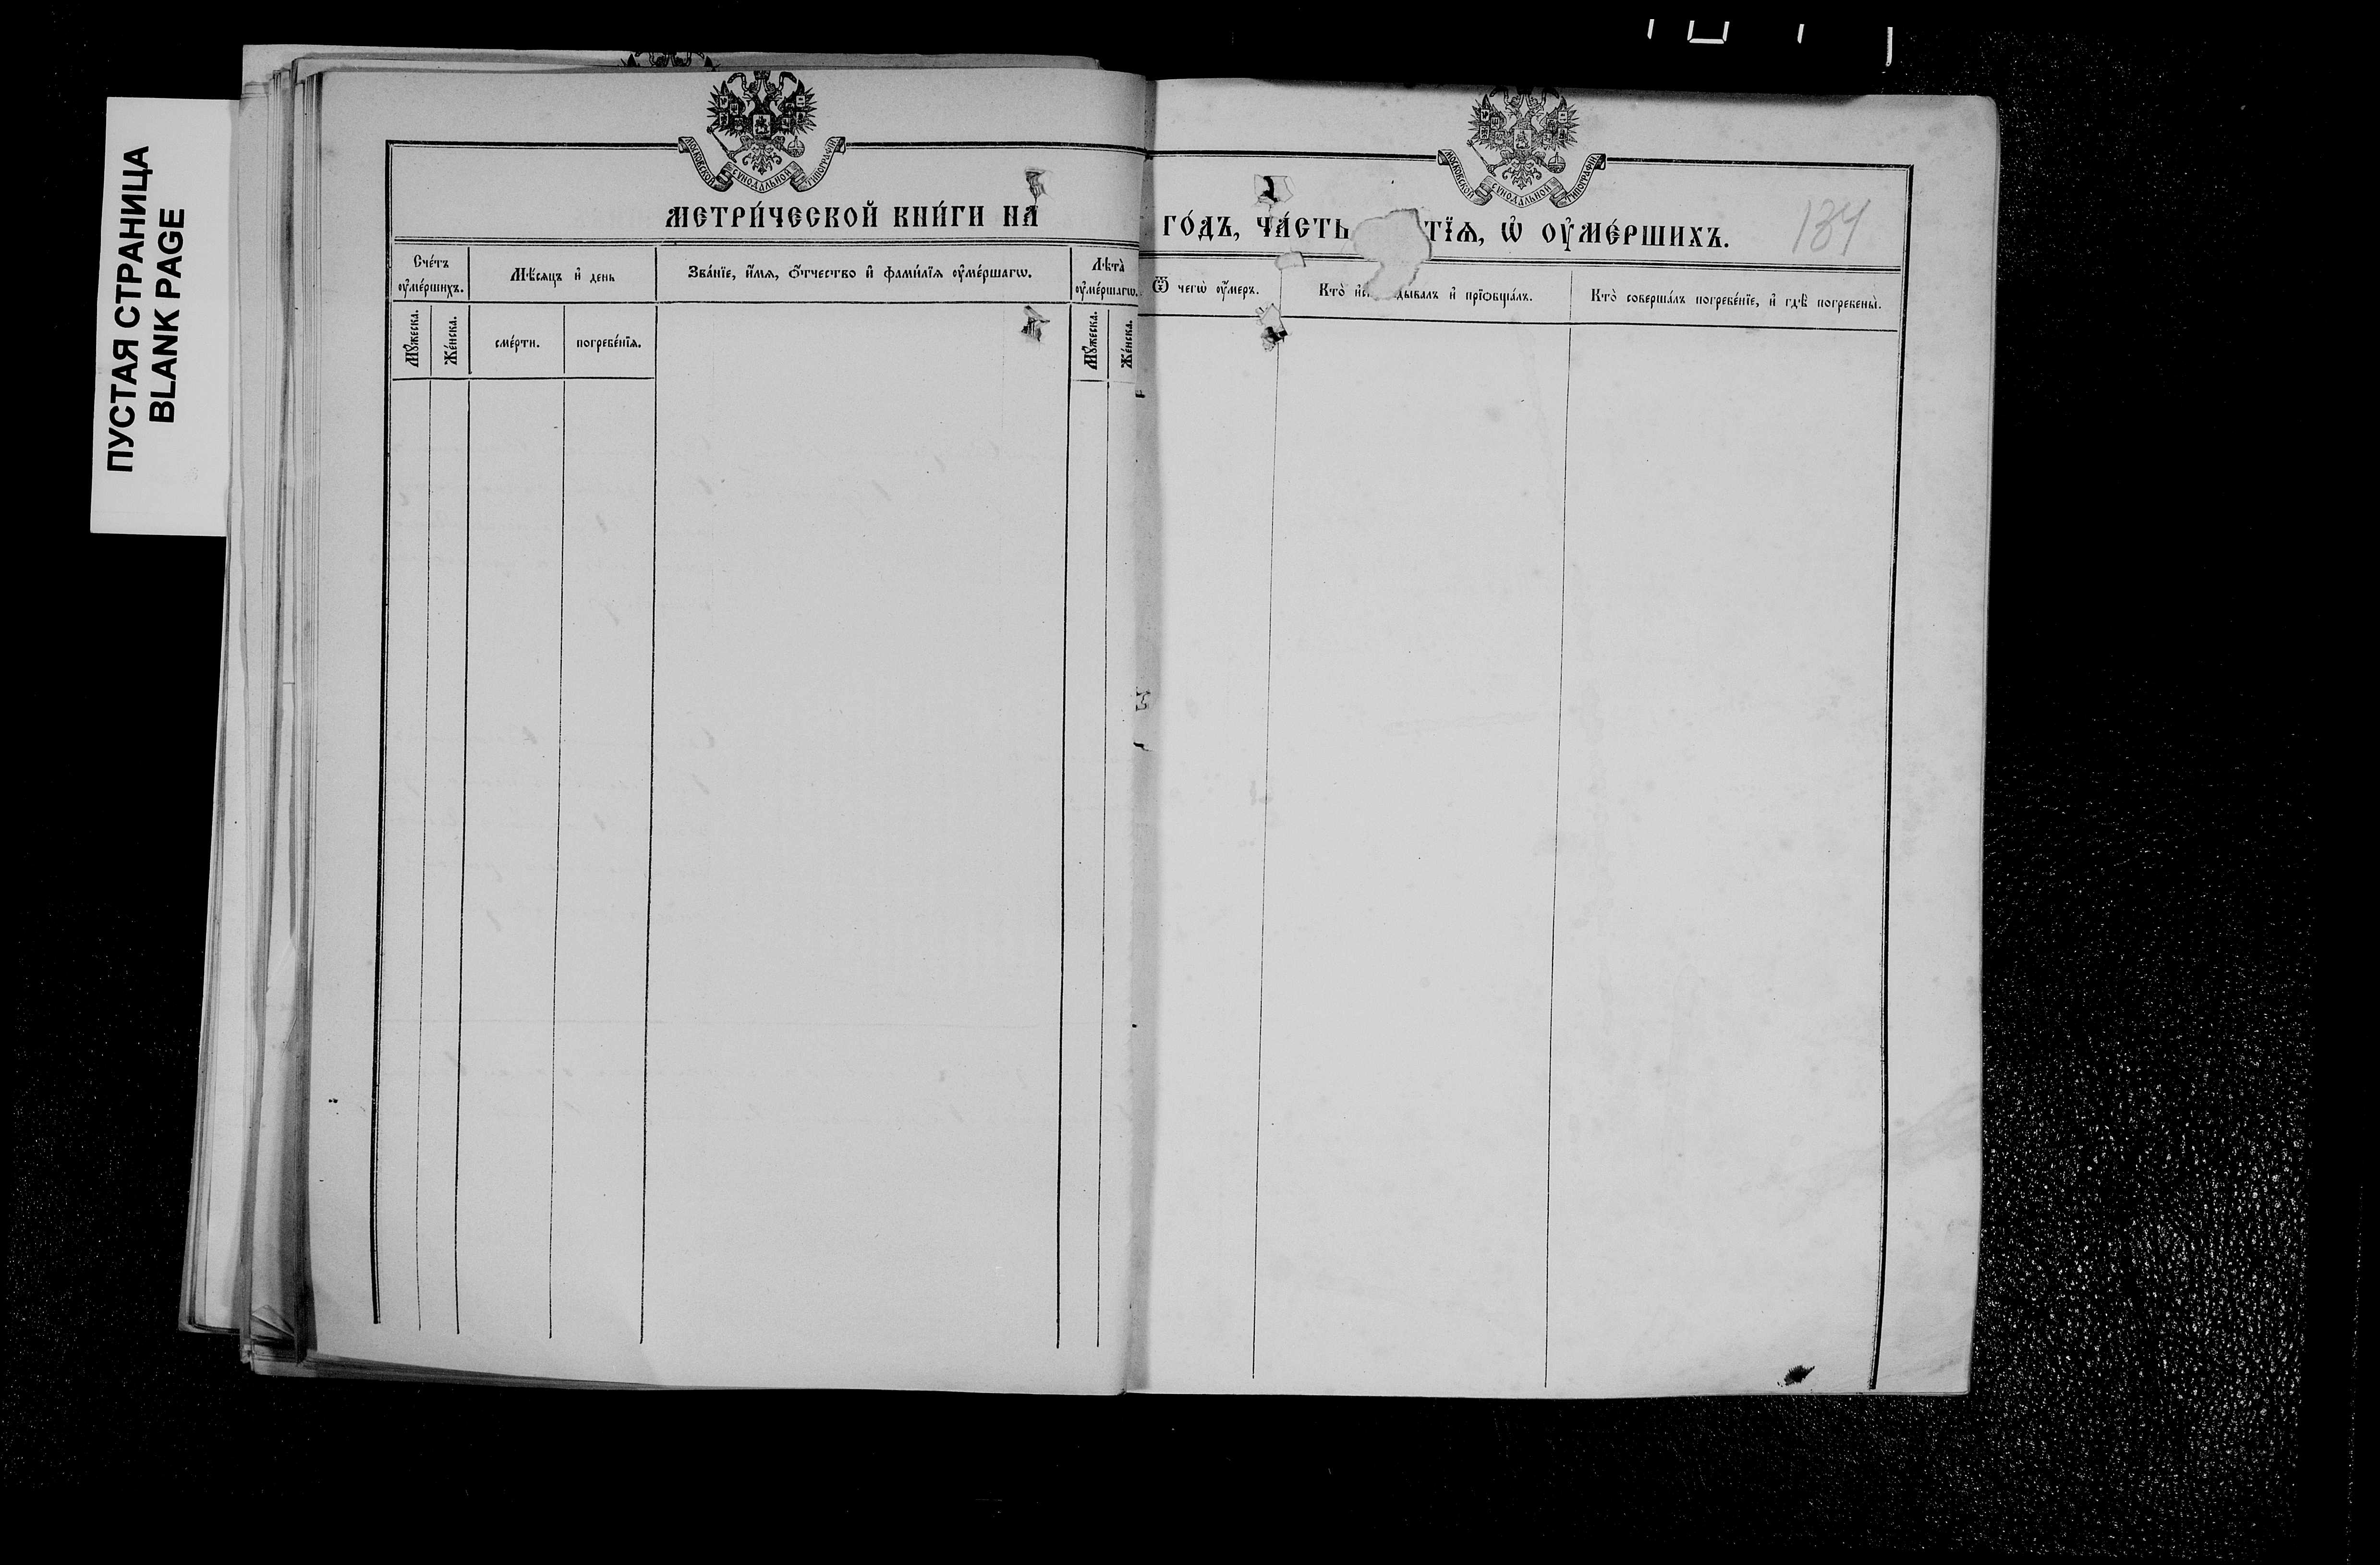 ПУСТАЯ СТРАНИЦА
BLANK PAGE
МОСКОВСКОЙ СѴНОДАЛЬНОЙ ТИПОГРАФІИ
МОСКОВСКОЙ СѴНОДАЛЬНОЙ ТИПОГРАФІИ
МЕТРИ́ЧЕСКОЙ КНИ́ГИ НА ГО́ДЪ, ЧА́СТЬ ТЇѦ, Ѡ҆ ОУ҆МЕ́РШИХЪ.
134
Сче́тъ оу҆ме́ршихъ.
Мѣ́сяцъ и҆ день
Зва́нїе, и҆́мя, ѻ҆́тчество и҆ фами́лїя оу҆ме́ршагѡ.
Лѣта̀ оу҆ме́ршагѡ.
Ѿ чегѡ̀ оу҆́меръ.
Кто̀ дывалъ и҆ прїѻбща́лъ.
Кто̀ соверша́лъ погребе́нїе, и҆ гдѣ̀ погребены̀.
Мꙋ́жеска.
Же́нска.
сме́рти.
погребе́нїя.
Мꙋ́жеска.
Же́нска.